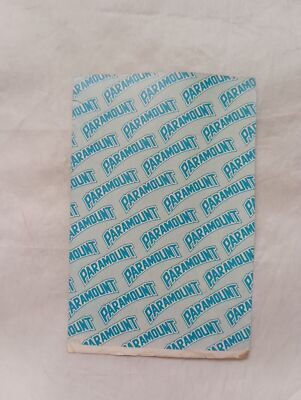 PARAMOUNT PARAMOUNT PARAMOUNT
PARAMOUNT PARAMOUNT PARAMOUNT
PARAMOUNT PARAMOUNT PARAMOUNT
PARAMOUNT PARAMOUNT PARAMOUNT
PARAMOUNT PARAMOUNT PARAMOUNT
PARAMOUNT PARAMOUNT PARAMOUNT
PARAMOUNT PARAMOUNT PARAMOUNT
PARAMOUNT PARAMOUNT PARAMOUNT
PARAMOUNT PARAMOUNT PARAMOUNT
PARAMOUNT PARAMOUNT PARAMOUNT
PARAMOUNT PARAMOUNT PARAMOUNT
PARAMOUNT PARAMOUNT PARAMOUNT